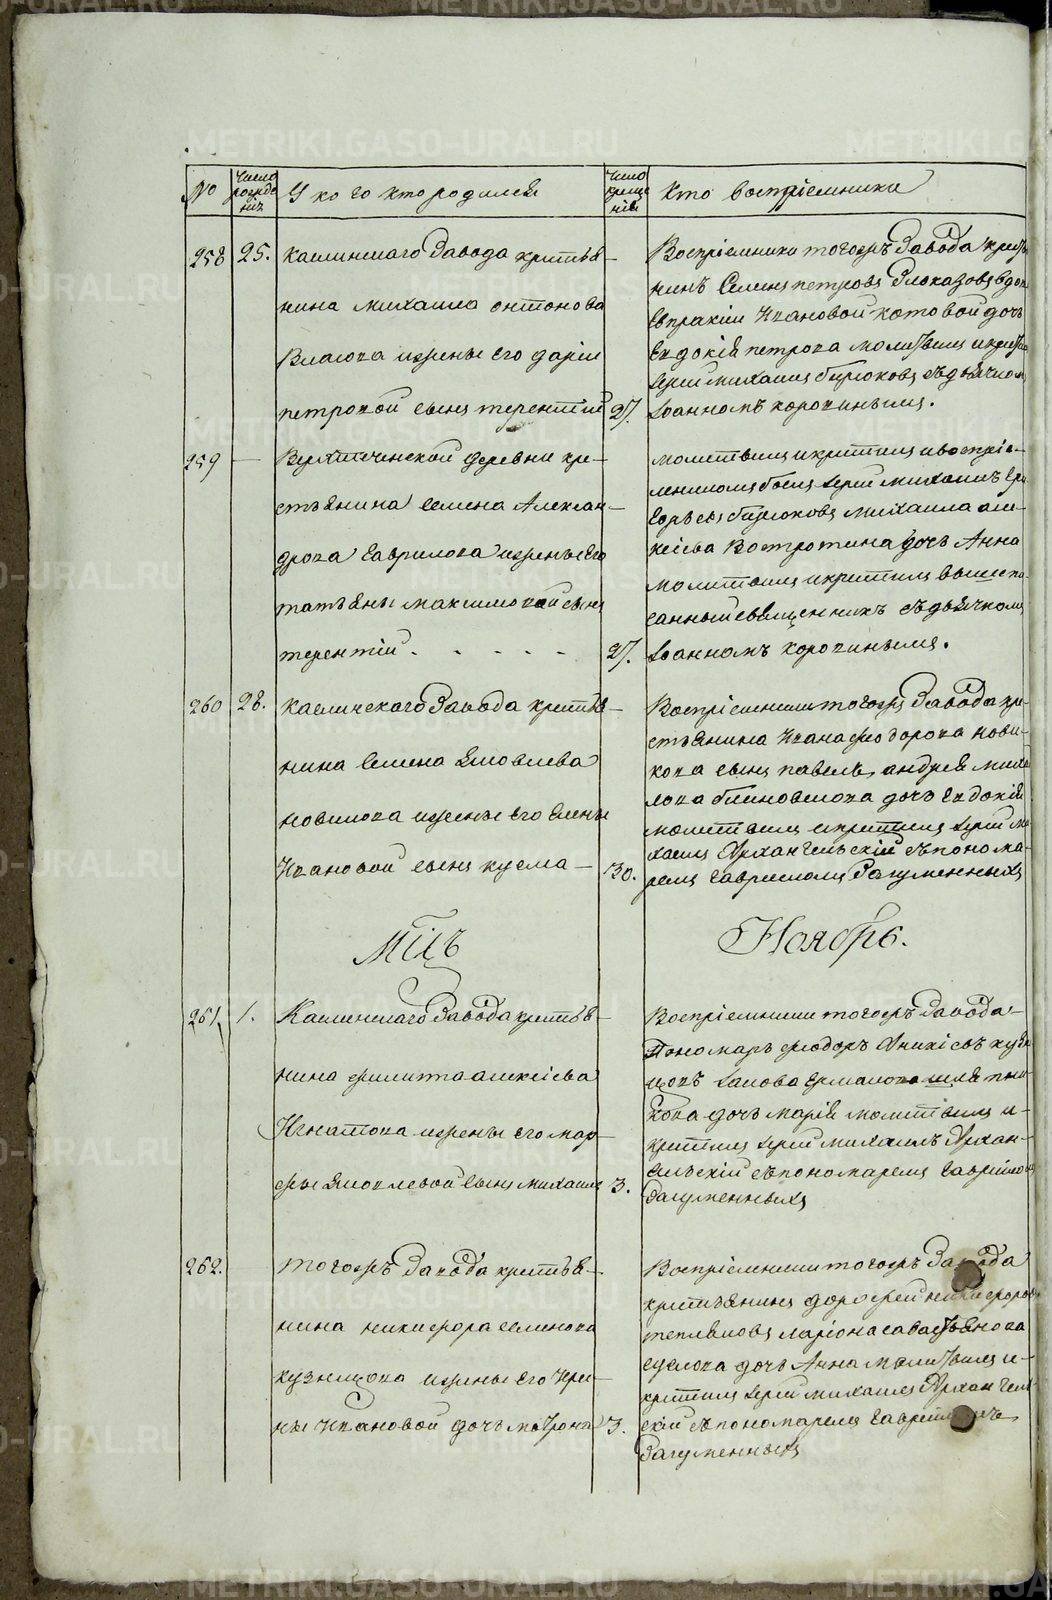 METRIKI.GASO-URAL.RU
№
Число рожденія
У кого кто родился
Число крещенія
Кто воспріемники
258
25.
Каслинскаго Завода крестья-
нина Михаила онтонова
Власова и жены его даріи
петровой сынъ терентій
27.
Воспріемники тогожъ Завода крестья
нинъ Семенъ петровъ Злоказовъ вдов
Евпраксіи Ивановой котовой дочь
Евдокія петрова молитвилъ и крестил
Іерей Михаилъ бирюковъ съ дьячкомъ
Іоанномъ корокинымъ.
259
—
деревни кре-
стьянина Семена Алексан-
дрова Гаврилова и жены его
татьяны максимовой сынъ
терентій . - - - -
27.
молитвилъ и крестилъ и воспріе-
мникомъ былъ Іерей михаилъ Гри
горьевъ бирюковъ михаила але-
ксіева Востротина дочь Анна
молитвилъ и крестилъ вышепи-
санный священникъ съ дьячкомъ
Іоанномъ корокинымъ.
260
28.
Каслинскаго Завода крестья-
нина Семена Яковлева
новикова и жены его Елены
Ивановой сынъ кузма —
30.
Воспріемники тогожъ Завода кре-
стьянина Ивана феодорова нови-
кова сынъ павелъ, андрея миха
лова блиновскова дочь Евдокія
молитвилъ и крестилъ Іерей ми
хаилъ Архангельскій съ понома-
ремъ Гавриломъ Загуменныхъ
Мцъ
Ноябрь.
261
1.
Каслинскаго Завода крестья-
нина филиппа алексіева
Игнатова и жены его мар-
фы Яковлевой сынъ михаилъ
3.
Воспріемники тогожъ Завода-
Пономарь феодоръ Аникіевъ кузн
Ермакова
кова дочь марія молитвилъ и-
крестилъ Іерей михаилъ Архан-
гельскій съ пономаремъ Гаврилом
Загуменныхъ
262.
Тогожъ Завода крестья-
нина никифора семенова
кузнецова и жены его Ири-
ны Ивановой дочь матрона
3.
Воспріемники тогожъ Завода
крестьянинъ дорофей никифоров
тепляковъ ларіона савастьянова
суслова дочь Анна молитвилъ и-
крестилъ Іерей михаилъ Архангель
скій съ пономаремъ Гавриломъ
Загуменныхъ